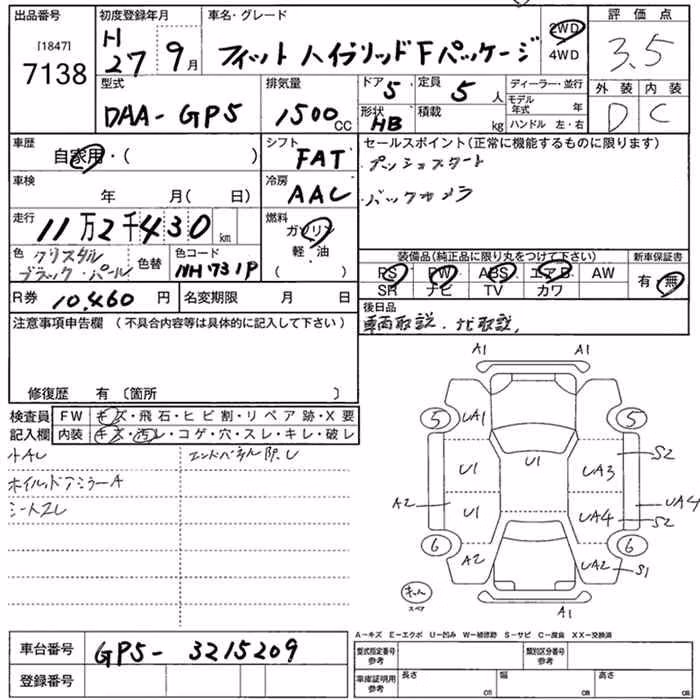 出品番号 初度登録年月 車名・グレード 評価点
[1847]
7138
H
27 9月
フィット ハイブリッド Fパッケージ
2WD
4WD
3.5
型式 排気量 ドア 5 定員 5人 ディーラー・並行
外装 内装
DAA-GP5 1500cc 形状 HB 積載 kg モデル年式 年
ハンドル 左・右
D C
車歴 自家用・( ) シフト FAT セールスポイント(正常に機能するものに限ります)
・プッシュスタート
車検 年 月( 日) 冷房 AAC
・バックカメラ
走行 11万2千430km 燃料 ガソリン
軽・油
( )
色 クリスタル
ブラック・パール
色替 色コード NH731P
装備品(純正品に限り丸をつけて下さい) 新車保証書
PS PW ABS エアB AW 有・無
SR ナビ TV カワ
R券 10,460円 名変期限 月 日
後日品
車両取説、ナビ取説、
注意事項申告欄 (不具合内容等は具体的に記入して下さい)
修復歴 有 〔箇所 〕
検査員 FW キズ・飛石・ヒビ割・リペア跡・X要
記入欄 内装 キズ・汚レ・コゲ・穴・スレ・キレ・破レ
A1 A1
5 UA1 5
U1 U1 UA3 S2
A2 U1 UA4 S2 UA4
6 A2 UA2 S1 6
スペア
A1
A−キズ E−エクボ U−凹み W−補修跡 S−サビ C−腐食 XX−交換済
車台番号 GP5-3215209
型式指定番号 参考 類別区分番号 参考
登録番号
車庫証明用 参考 長さ cm 幅 cm 高さ cm